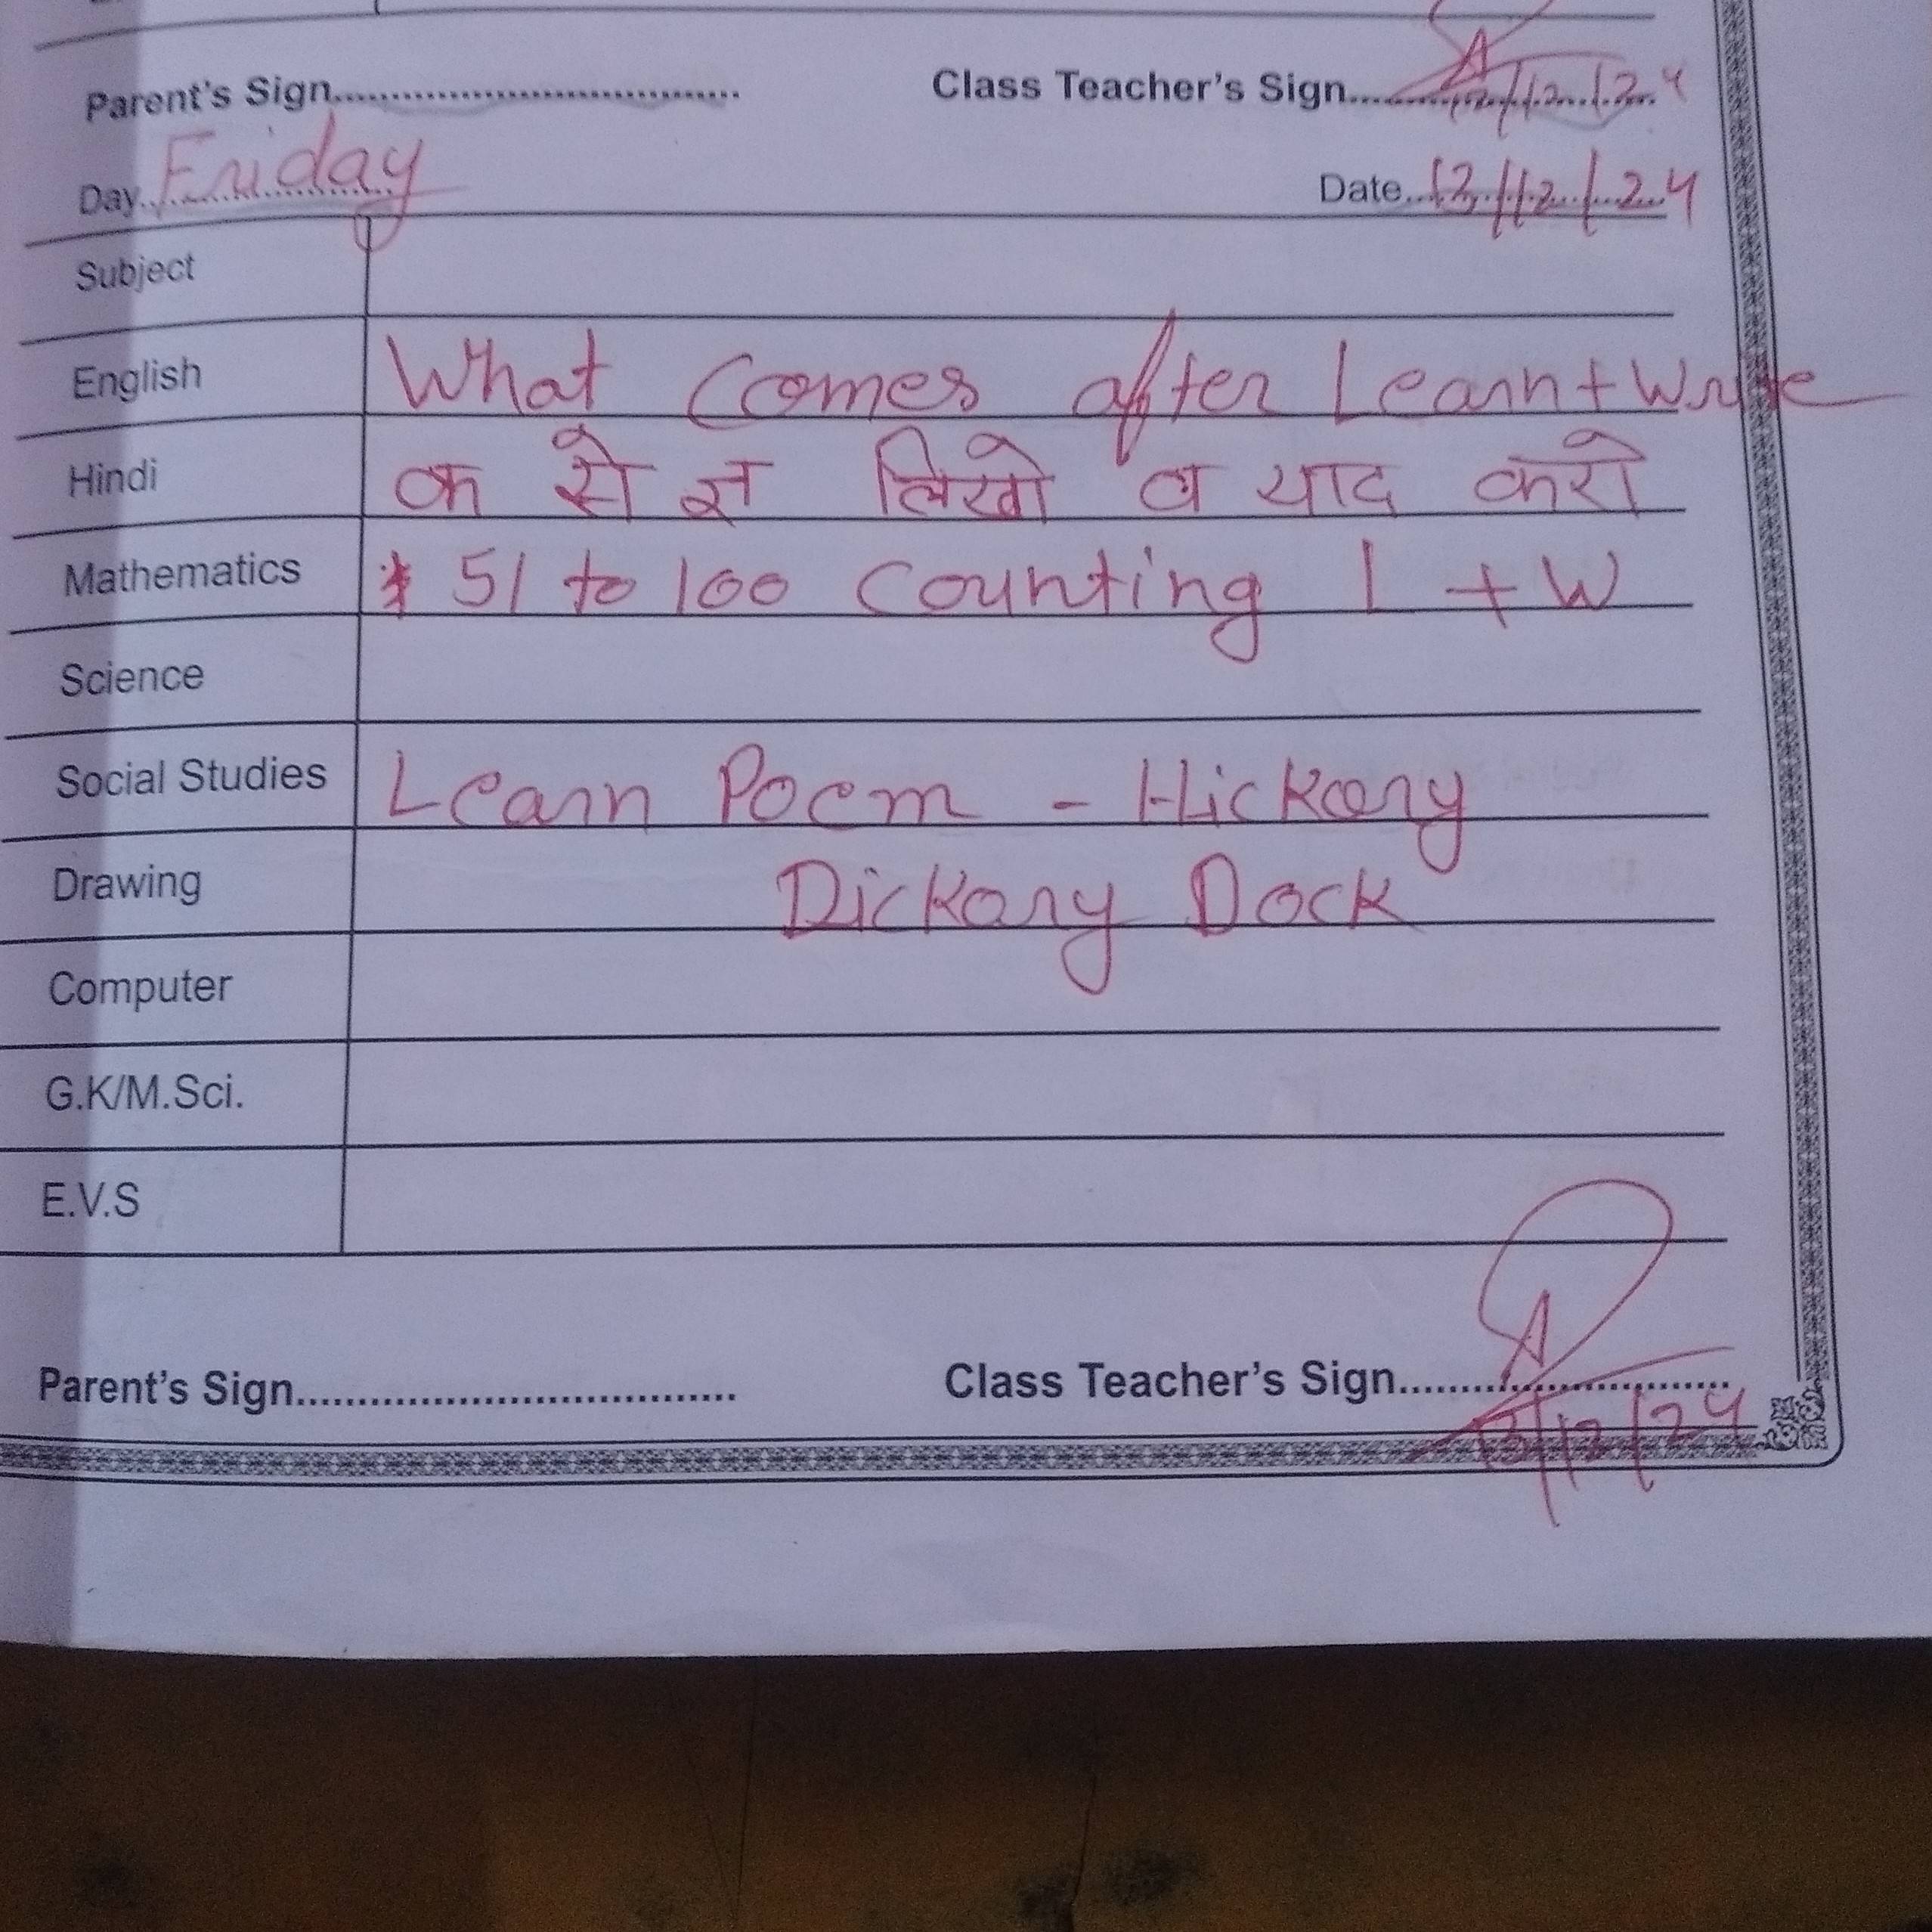 Parent's Sign.................................... Class Teacher's Sign.......... 12/12/24
Day. Friday Date. 13/12/24
Subject
English What Comes after Learn + Write
Hindi क से ज्ञ लिखो व याद करो
Mathematics * 51 to 100 Counting L + W
Science
Social Studies Learn Poem - Hickory
Drawing Dickory Dock
Computer
G.K/M.Sci.
E.V.S
Parent's Sign.................................... Class Teacher's Sign...........................
13/12/24